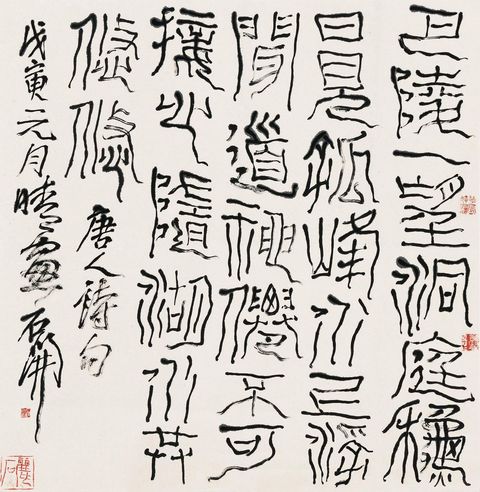 巴陵一望洞庭穐
日見孤峰水上浮
聞道神僊不可
接心隨湖水共
悠悠 唐人詩句
戊寅元月晴窗石開